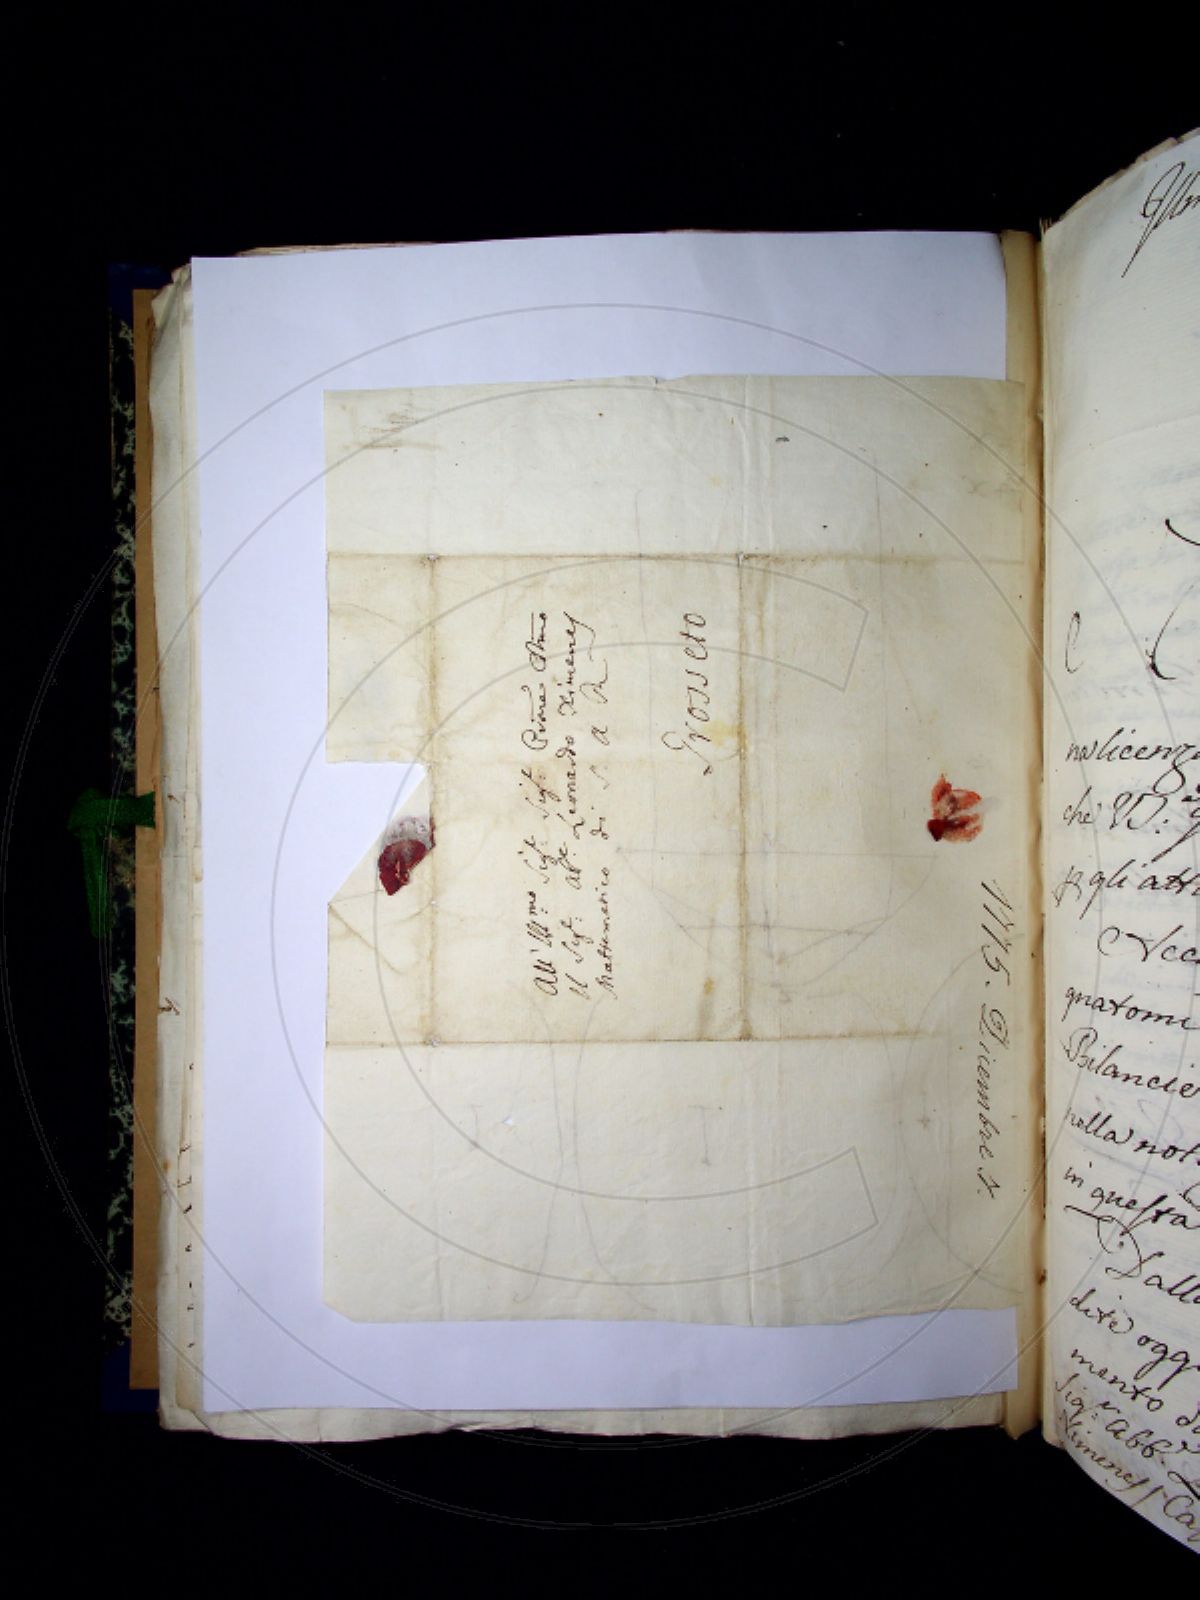 All' Ill:mo Sig.r Sig.r Prone Stmo
Il Sig.r Ab.e Leonardo Ximenes
Matematico di S. A. R.
Grosseto
1775. Dicembre 4.
licenza
che V.S:
gli atti
Bilancie
nella not
in questa
Dalla
dite ogg
mento d
Sig.r Abb. L
Ximenes